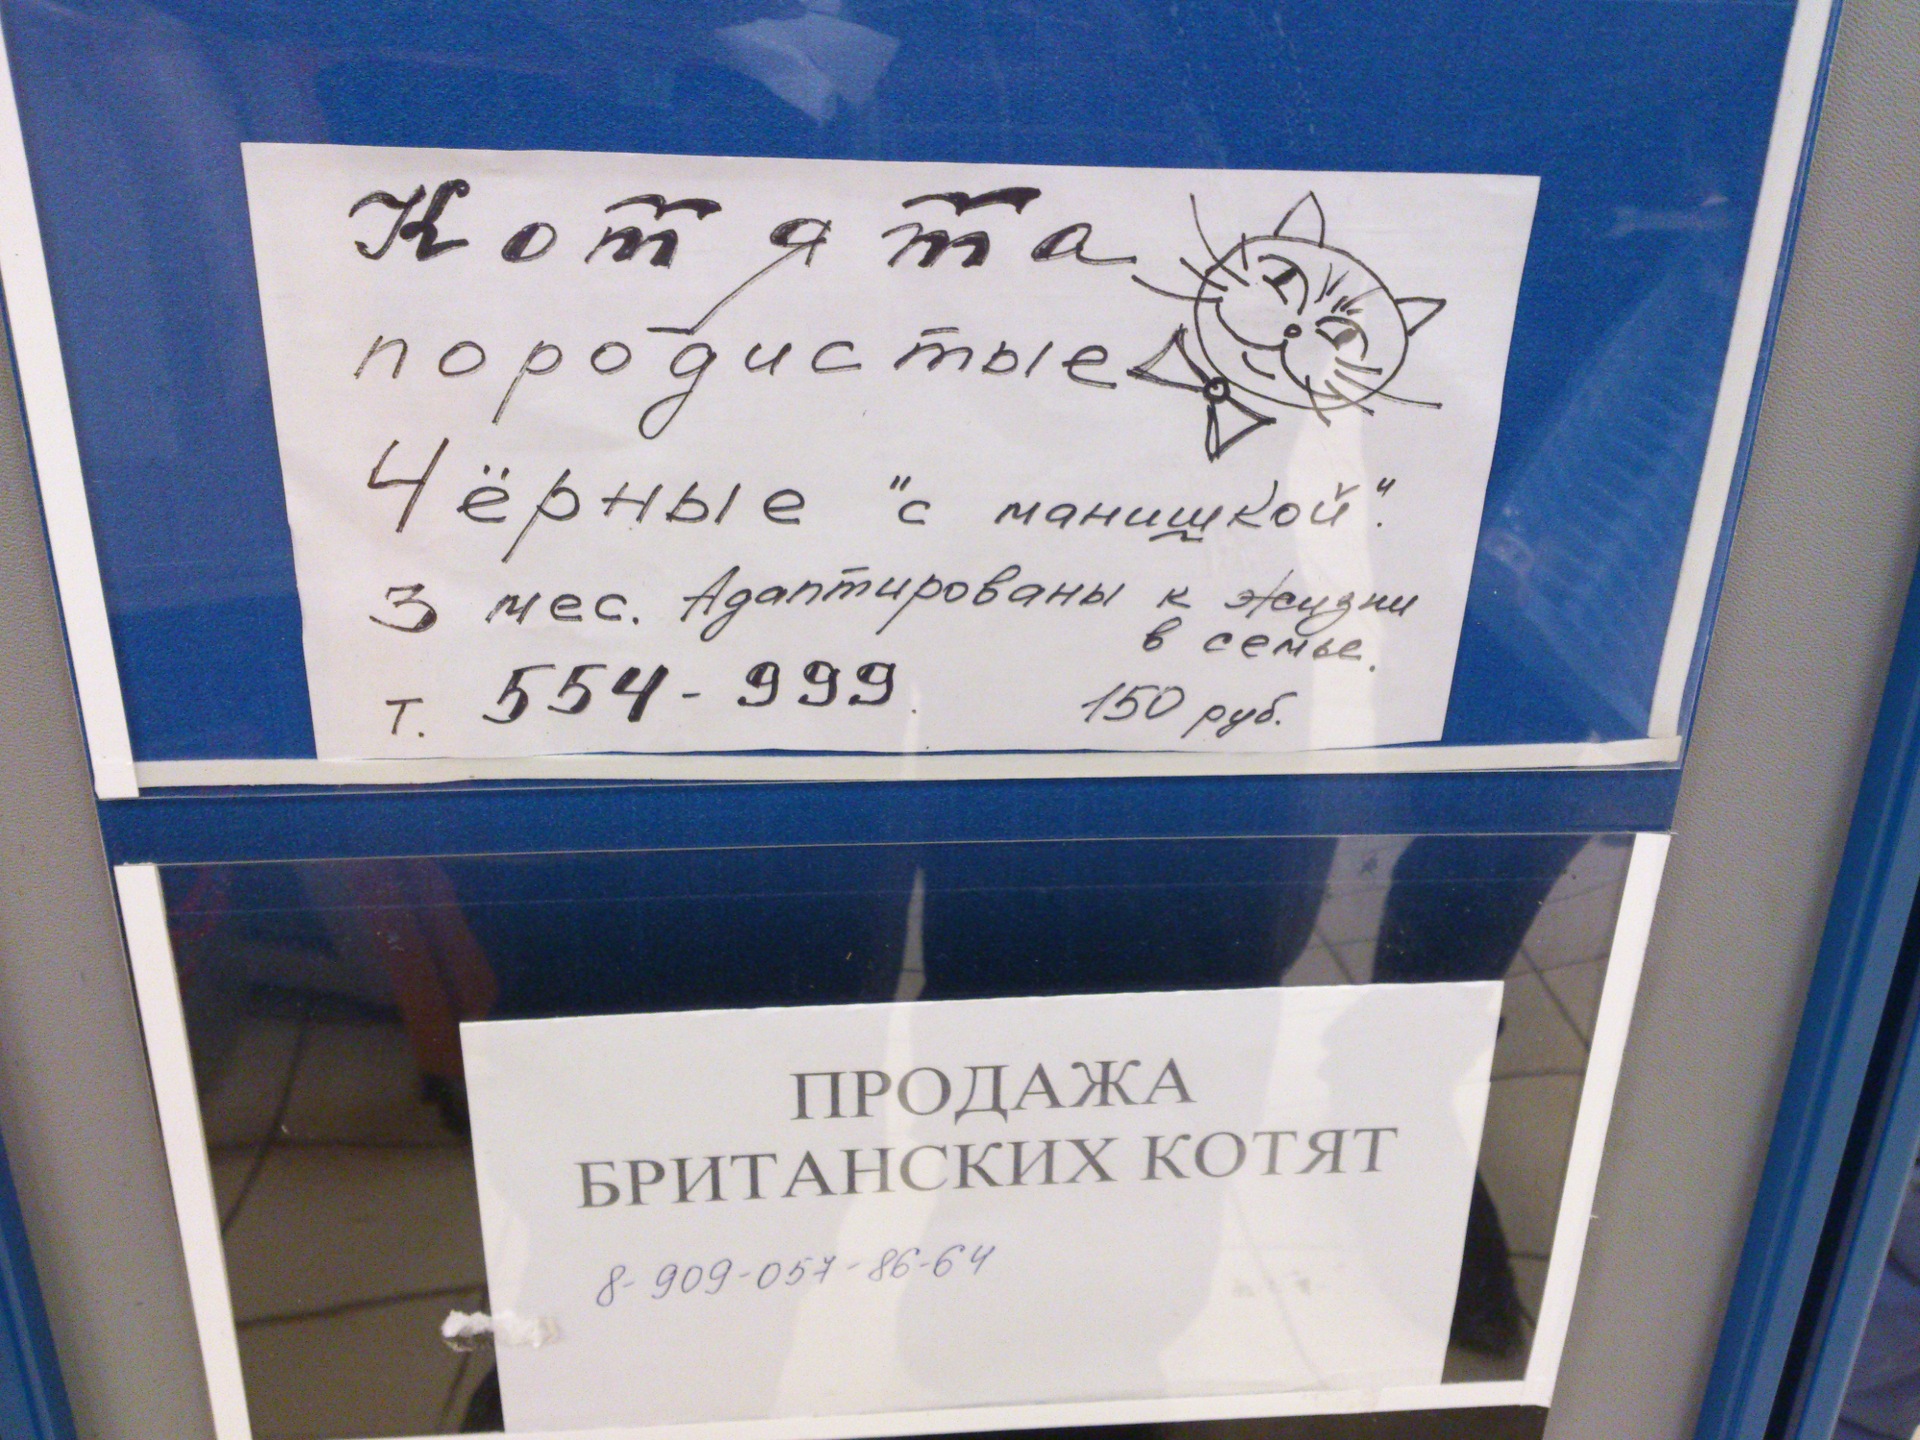 Котята
породистые
Чёрные "с манишкой".
3 мес. Адаптированы к жизни
в семье.
т. 554-999. 150 руб.
ПРОДАЖА
БРИТАНСКИХ КОТЯТ
8-909-057-86-64